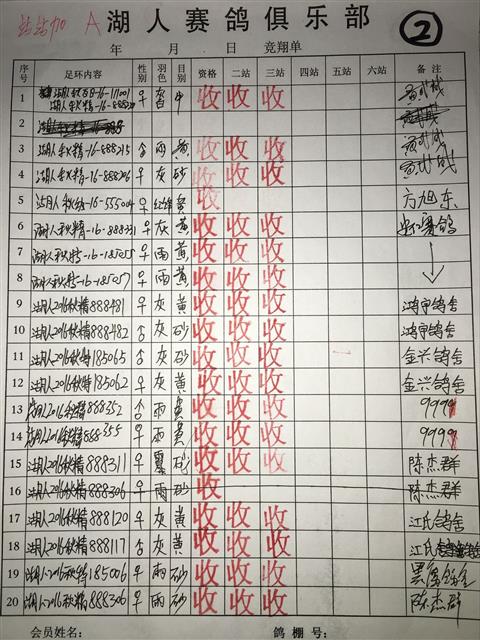 站站加 A 湖人赛鸽俱乐部 ②
年 月 日 竞翔单
序号 足环内容 性别 羽色 目别 资格 二站 三站 四站 五站 六站 备注
1 ♀ 收 收 收
2
3 湖人秋精-16-888215 雨 黄 收 收 收
4 湖人秋精-16-888206 ♀ 灰 砂 收 收 收
5 湖人秋 -16-555004 ♀ 黄 收 方旭东
6 湖人秋精-16-888331 ♀ 灰 黄 收 收 收 赛鸽
7 湖人秋特-16-185055 ♀ 雨 黄 收 收 收
8 湖人秋特-16-185057 ♀ 雨 黄 收 收 收
9 湖人2016秋精888481 ♀ 灰 黄 收 收 收 鸿宇鸽舍
10 湖人2016秋精888482 灰 砂 收 收 收 鸿宇鸽舍
11 湖人2016秋特185065 灰 砂 收 收 收 金兴鸽舍
12 湖人2016秋特185062 ♀ 灰 黄 收 收 收 金兴鸽舍
13 湖人2016秋精888352 雨 黄 收 收 收 9999
14 湖人2016秋精888355 ♀ 雨 黄 收 收 收 9999
15 湖人2016秋精888311 ♀ 砂 收 收 收 陈杰群
16 湖人2016秋精888306 ♀ 雨 砂 收 陈杰群
17 湖人2016秋精888120 ♀ 灰 黄 收 收 收 江氏鸽舍
18 湖人2016秋精888117 灰 黄 收 收 收 江氏
19 湖人2016秋特185006 ♀ 雨 砂 收 收 收
20 湖人2016秋精888306 ♀ 雨 砂 收 收 收 陈杰群
会员姓名: 鸽棚号: